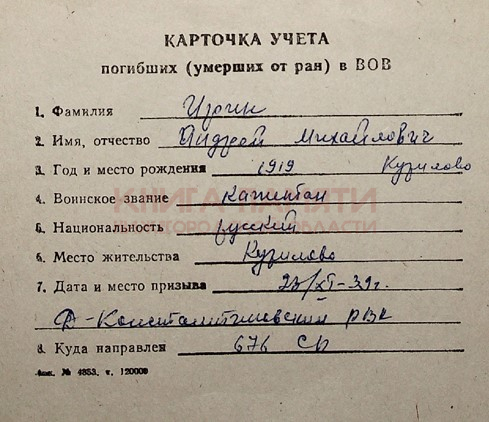 КАРТОЧКА УЧЕТА
погибших (умерших от ран) в ВОВ
1. Фамилия
2. Имя, отчество Андрей Михайлович
3. Год и место рождения 1919 Курилово
4. Воинское звание капитан
КНИГА ПАМЯТИ
5. Национальность русский
6. Место жительства Курилово
7. Дата и место призыва 23/XI-39г.
Д-Константиновский РВК
8. Куда направлен 676
Зак. № 4853, т. 120000